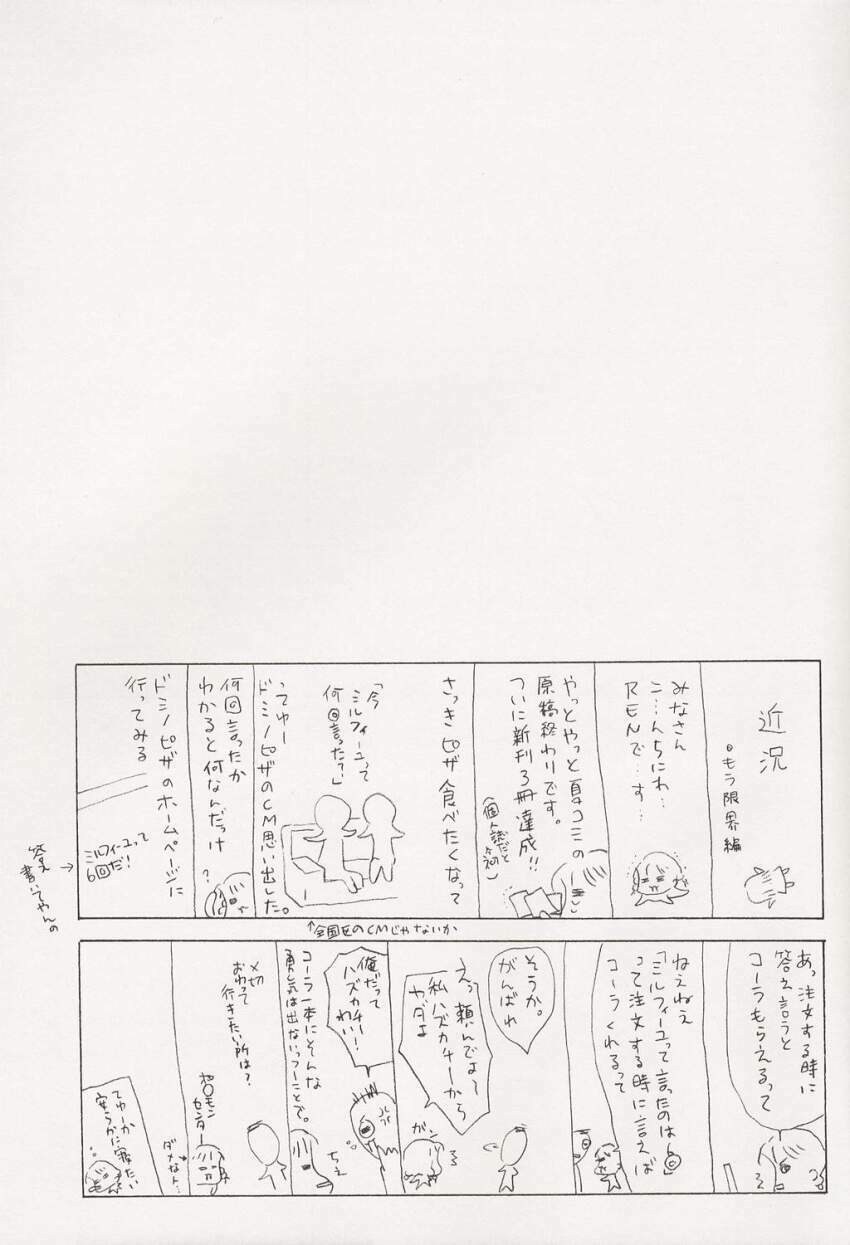 近況
もう限界編
みなさん
こ…んちにわ…
RENで…す…
やっとやっと夏コミの
原稿終わりです。
ついに新刊3冊達成!!
(個人誌だと
さっきピザ食べたくなって
「今
ミルフィーユって
何回言った?」
ってゆー
ドミノピザのCM思い出した。
↑全国区のCMじゃないか
何回言ったか
わかると何なんだっけ?
ドミノピザのホームページに
行ってみる
ミルフィーユって
6回だ!
答え
書いてやんの
あっ注文する時に
答え言うと
コーラもらえるって
ねえねえ
「ミルフィーユって言ったのは6回」
って注文する時に言えば
コーラくれるって
そうか。
がんばれ
えっ頼んでよ〜
私ハズカチーから
ヤダよ
ガン
俺だって
ハズカチー!
わい!
コーラ一本にそんな
勇気は出ないっつーことで。
ちぇ
〆切
おわって
行きたい所は?
センター
ダメなト…
てゆーか
安らかに寝たい